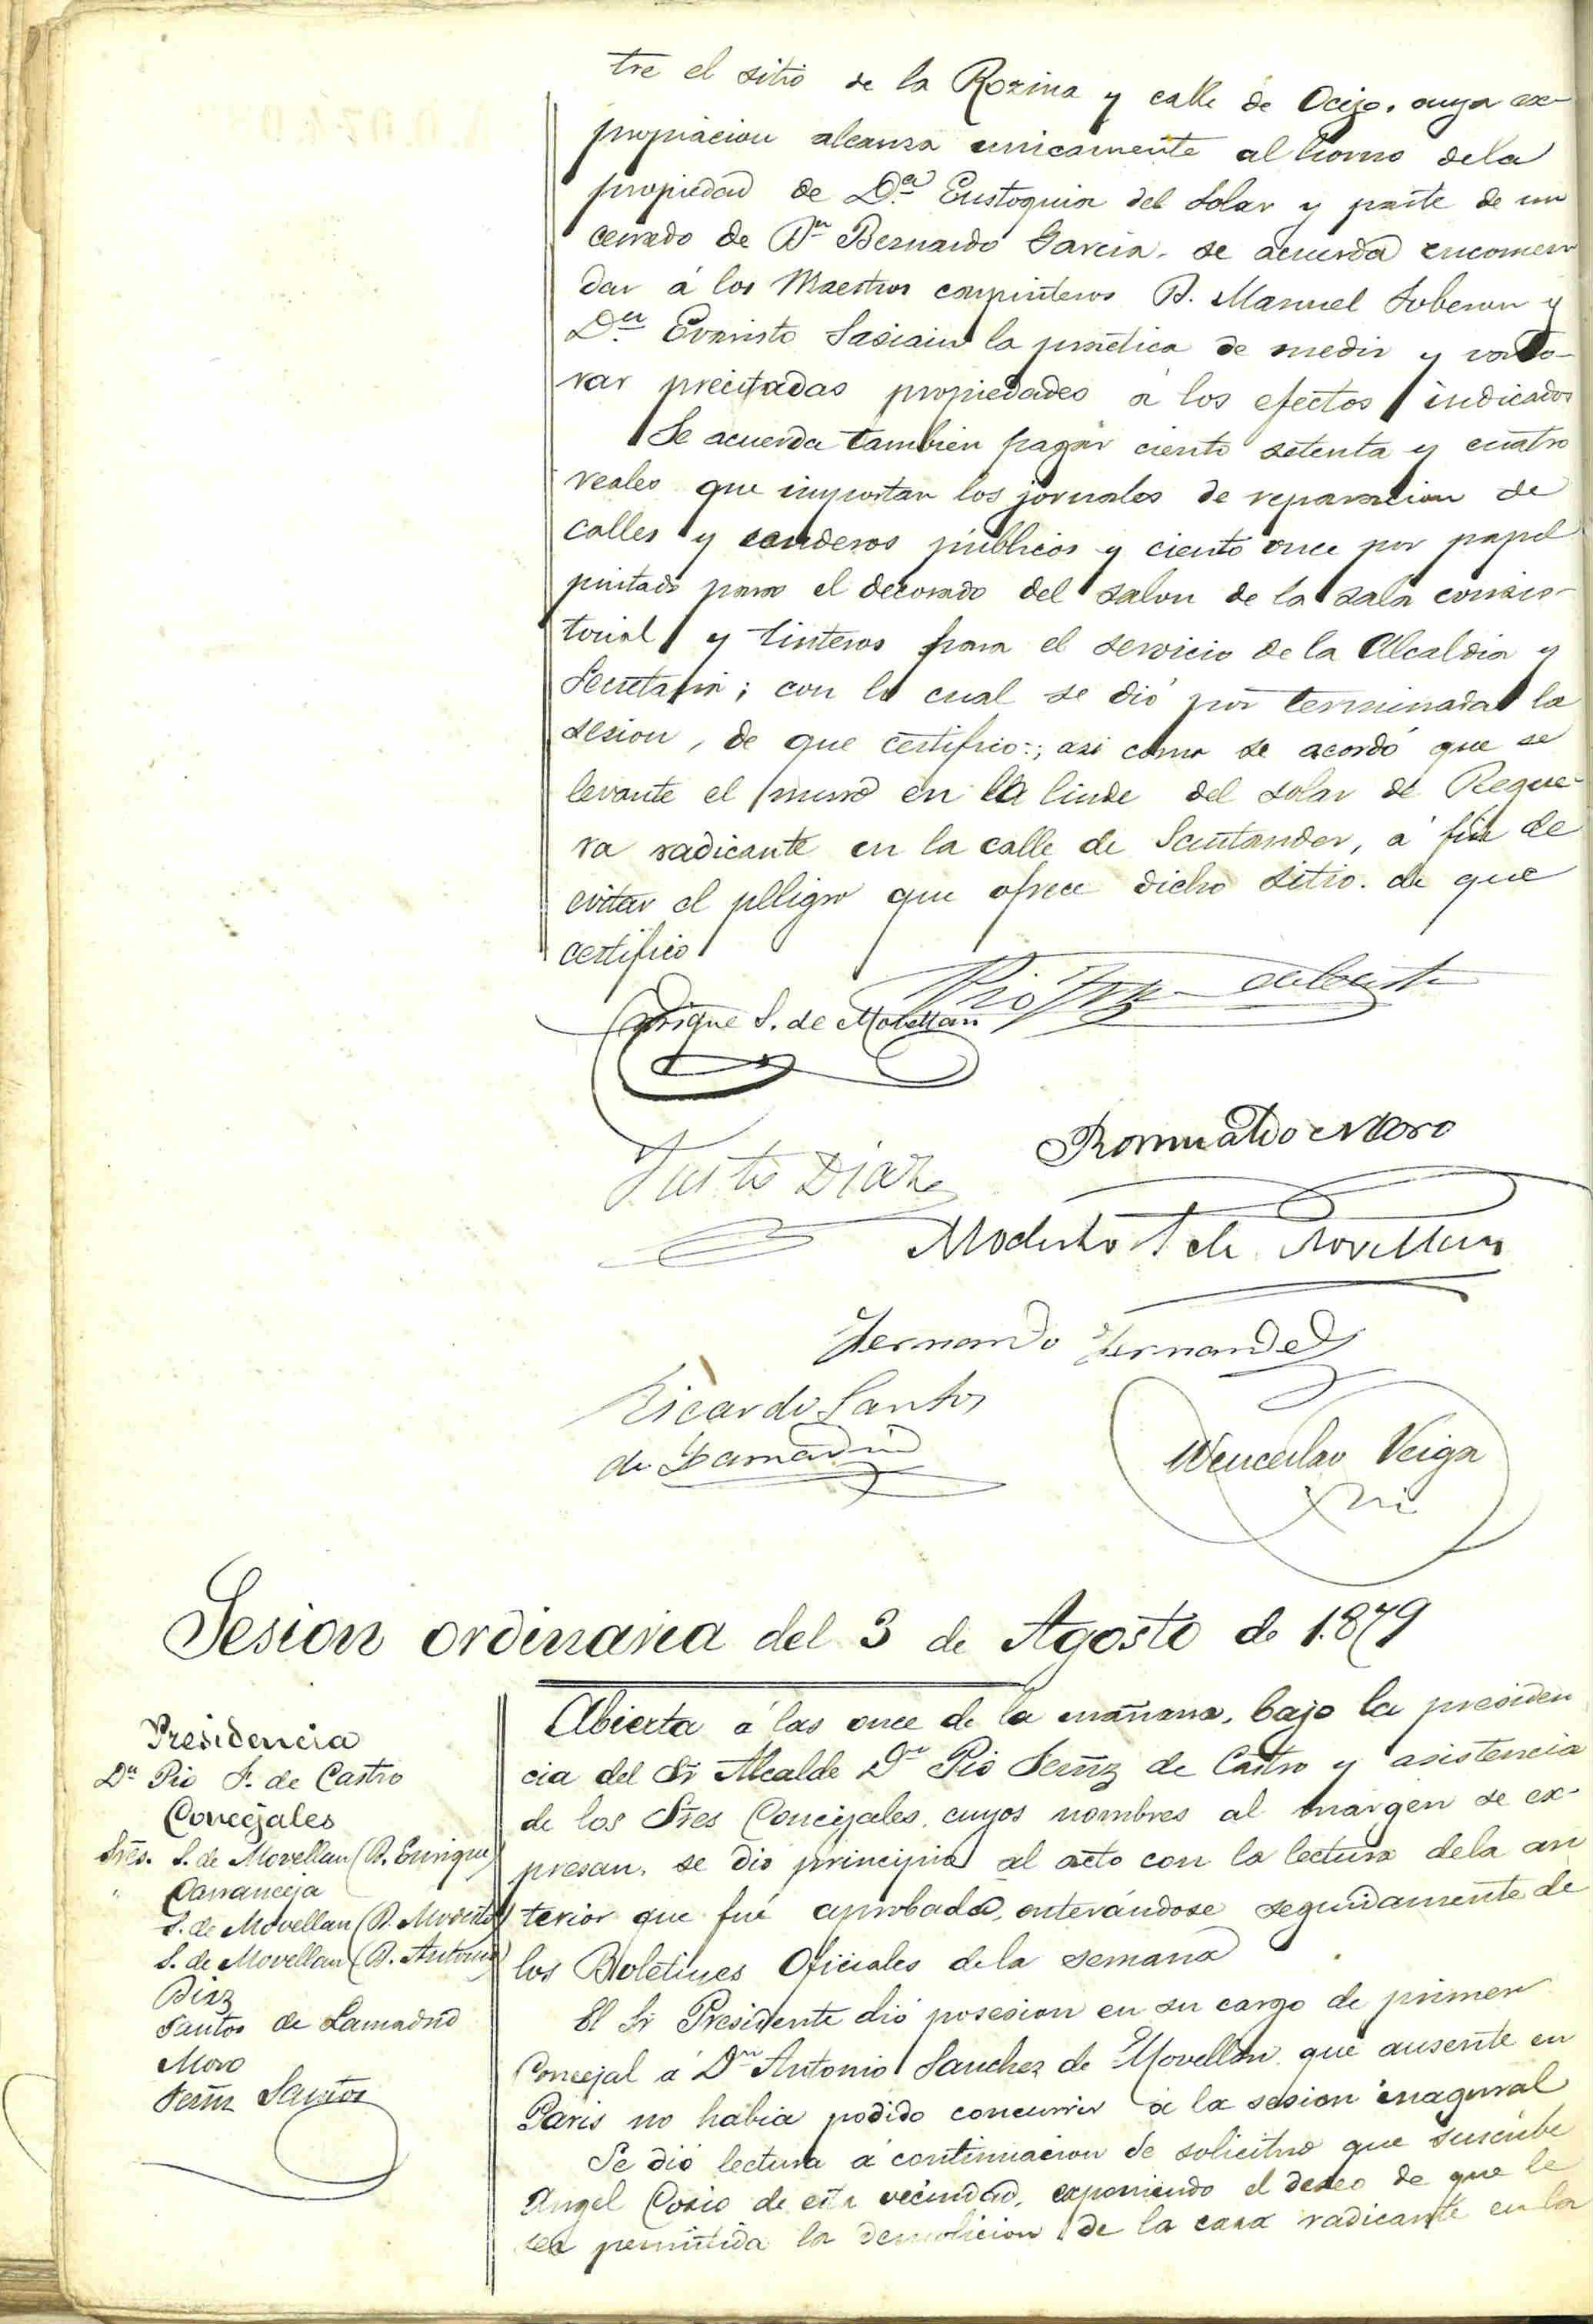 tre el sitio de la Rozina y calle de Ocejo, cuya ex-
propiacion alcanza unicamente al horno dela
propiedad de D.ª Eustoquia del Solar y parte de un
cerrado de Dn Bernardo Garcia, se acuerda encomen
dar á los Maestros carpinteros D. Manuel Soberon y
Dn Evaristo Sasiain la práctica de medir y valo-
rar precitadas propiedades á los efectos indicados
Se acuerda tambien pagar ciento setenta y cuatro
reales que importan los jornales de reparacion de
calles y senderos públicos y ciento once por papel
pintado para el decorado del salon de la sala consis-
torial y tinteros para el servicio de la Alcaldia y
Secretaria; con lo cual se dió por terminada la
sesion, de que certifico:; asi como se acordó que se
levante el muro en la linde del solar de Regue-
ra radicante en la calle de Santander, á fin de
evitar el peligro que ofrece dicho sitio. de que
certifico
Enrique S. de Movellan
Romualdo Moro
Justo Diaz
Modesto S. de Movellan
Fernando Fernandez
Ricardo Santos
de Lamadrid
Wenceslao Veiga
Sesion ordinaria del 3 de Agosto de 1.879
Presidencia
Dn Pio F. de Castro
Concejales
Sres. S. de Movellan (D. Enrique)
" Carranceja
S. de Movellan (D. Modesto)
S. de Movellan (D. Antonio)
Diaz
Santos de Lamadrid
Moro
Fernz Santos
Abierta á las once de la mañana, bajo la presiden
cia del Sr Alcalde Dn Pio Fernz de Castro y asistencia
de los Sres Concejales, cuyos nombres al margen se ex-
presan, se dio principio al acto con la lectura dela an
terior que fué aprobada, enterándose seguidamente de
los Boletines Oficiales dela semana
El Sr Presidente dió posesion en su cargo de primer
Concejal á Dn Antonio Sanchez de Movellan, que ausente en
Paris no habia podido concurrir á la sesion inagural
Se dió lectura á continuacion de solicitud que suscribe
Angel Cosio de esta vecindad, exponiendo el deseo de que le
sea permitida la demolicion de la casa radicante en la